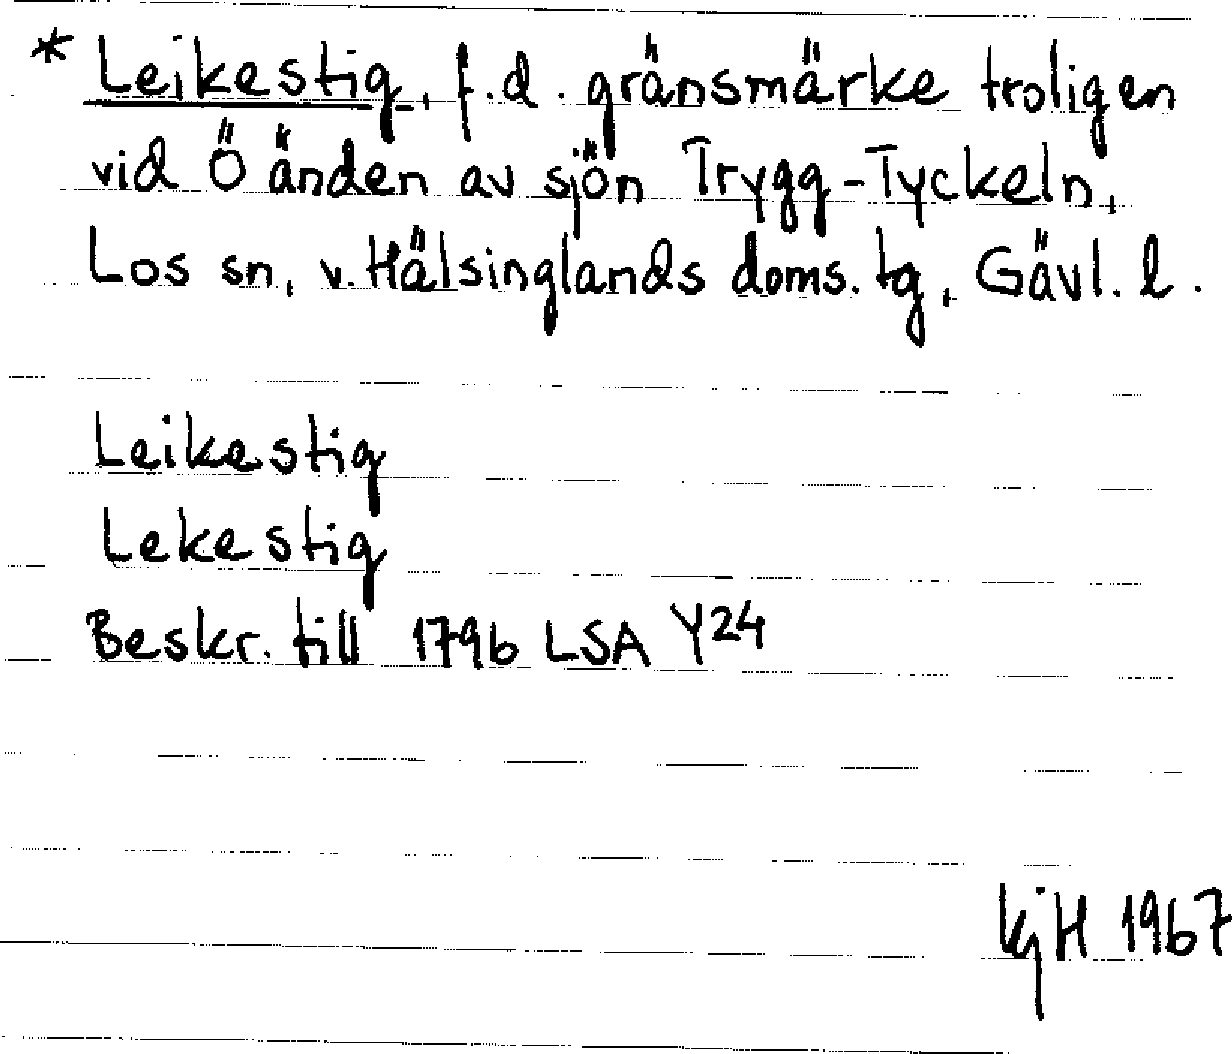 * Leikestig, f.d. gränsmärke troligen
vid Ö änden av sjön Trygg-Tyckeln,
Los sn, v. Hälsinglands doms. tg, Gävl. l.
Leikestig
Lekestig
Beskr. till 1796 LSA Y24
KjH 1967